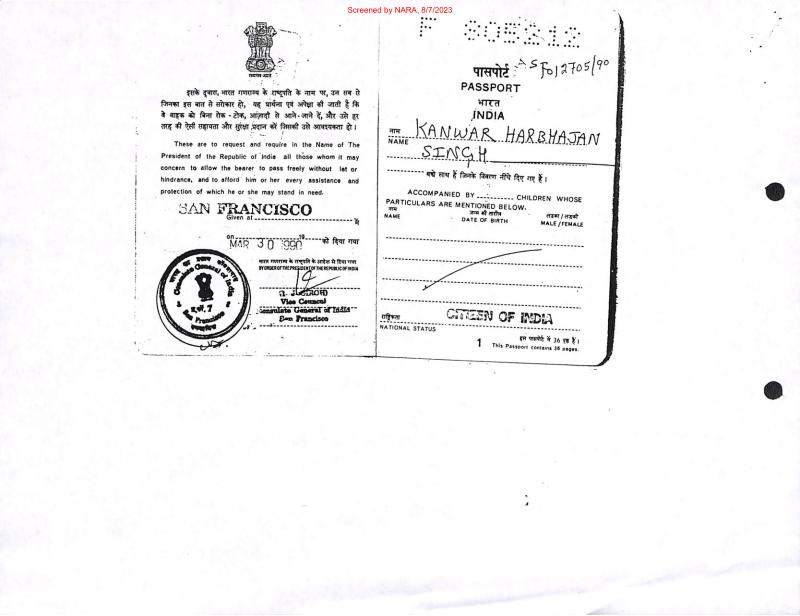 Screened by NARA, 8/7/2023
सत्यमेव जयते
इसके द्वारा, भारत गणराज्य के राष्ट्रपति के नाम पर, उन सब से
जिनका इस बात से सरोकार हो, यह प्रार्थना एवं अपेक्षा की जाती है कि
वे वाहक को बिना रोक-टोक, आज़ादी से आने-जाने दें, और उसे हर
तरह की ऐसी सहायता और सुरक्षा प्रदान करें जिसकी उसे आवश्यकता हो।
These are to request and require in the Name of The
President of the Republic of India all those whom it may
concern to allow the bearer to pass freely without let or
hindrance, and to afford him or her every assistance and
protection of which he or she may stand in need.
SAN FRANCISCO
Given at में
on 19 को दिया गया
MAR 30 1990
भारत गणराज्य के राष्ट्रपति के आदेश से दिया गया
BY ORDER OF THE PRESIDENT OF THE REPUBLIC OF INDIA
Vice Council
Consulate General of India
San Francisco
Consulate General of India
San Francisco
F 805212
पासपोर्ट
PASSPORT
भारत
INDIA
नाम
NAME
KANWAR HARBHAJAN
SINGH
बच्चे साथ हैं जिनके विवरण नीचे दिए गए हैं।
ACCOMPANIED BY CHILDREN WHOSE
PARTICULARS ARE MENTIONED BELOW.
नाम जन्म की तारीख लड़का/लड़की
NAME DATE OF BIRTH MALE/FEMALE
राष्ट्रिकता
CITIZEN OF INDIA
NATIONAL STATUS
इस पासपोर्ट में 36 पृष्ठ हैं।
1 This Passport contains 36 pages.